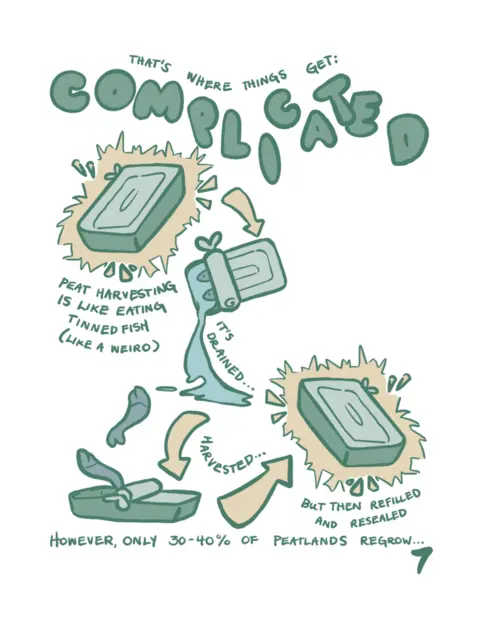 THAT'S WHERE THINGS GET:
COMPLICATED
PEAT HARVESTING
IS LIKE EATING
TINNED FISH
(LIKE A WEIRO)
IT'S
DRAINED...
HARVESTED...
BUT THEN REFILLED
AND RESEALED
HOWEVER, ONLY 30-40% OF PEATLANDS REGROW...
7